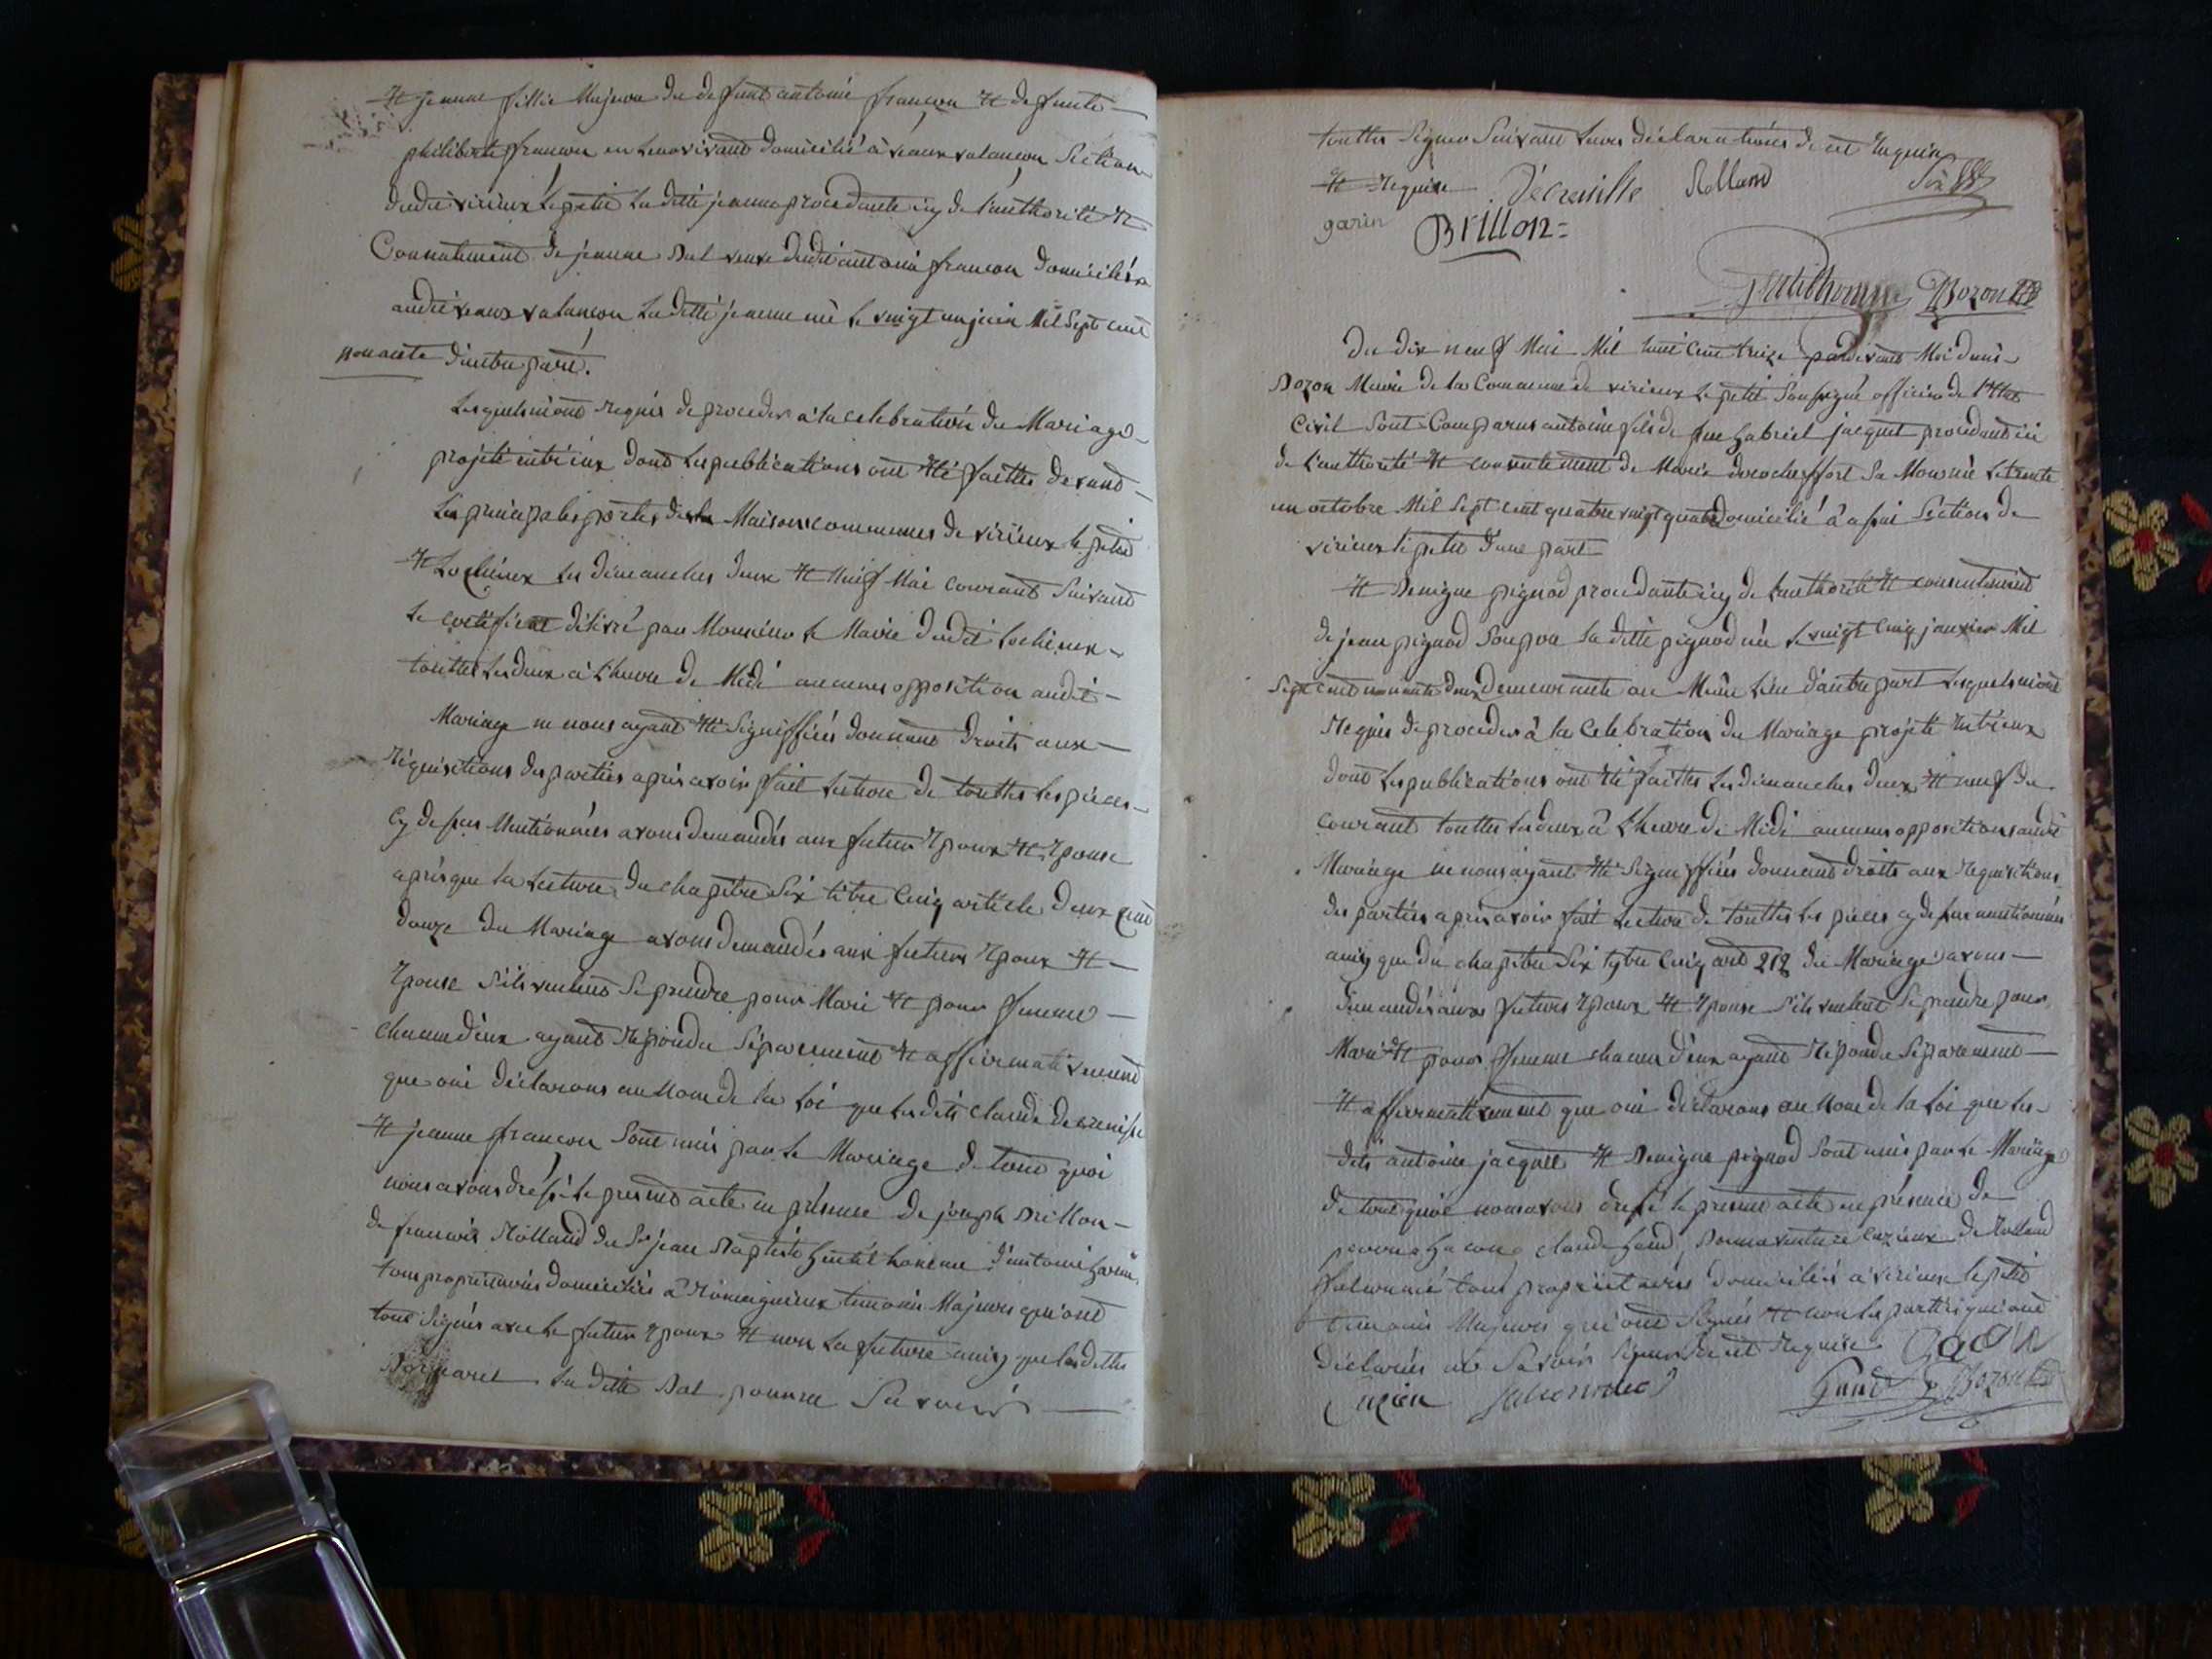 Et jeanne fillie Majeure du defunt antoine françon Et defunte
philiberte françon en leur vivant domicilié à vaux valançon Section
dudit virieux le petit la ditte jeanne procedante icy de l'authorité Et
Consentement de jeanne veuve dudit antoine françon domiciliés
audit vaux valançon la ditte jeanne née le vingt un juin Mil Sept cent
nonante d'autre part.
Lesquels m'ont requis de proceder à la celebration du Mariage
projeté entr'eux dont les publications ont Eté faittes devant
les principales portes des Maisons communes de virieux le petit
Et Lochieux les dimanches deux Et Neuf Mai courant Suivant
le certificat délivré par Monsieur le Maire dudit Lochieux
touttes les deux à L'heure de Midi aucunes opposition audit
Mariage ne nous ayant Eté Signiffiées donnant droits aux
réquisitions des parties après avoir fait lecture de touttes les pièces
Cy dessus Mentionnées avons demandés aux futur Epoux Et Epouse
après que la lecture du chapitre Six titre Cinq article deux cent
douze du Mariage avons demandés aux futurs Epoux Et
Epouse S'ils veulent Se prendre pour Mari Et pour femme
chacun d'eux ayant Répondu Séparement Et affirmativement
que oui déclarons au Nom de la Loi que les dits claude
Et jeanne françon Sont unis par le Mariage de tout quoi
nous avons dressé le present acte en présence de joseph Brillon
de francois Rolland du Sr jean Baptiste Gentil homme d'antoine Garin
tous proprietaires domiciliés à temoins Majeurs qui ont
tous Signés avec le futur Epoux Et non la future ainsy que les dittes
la ditte pour ne Savoir
touttes Signer Suivant leurs déclarations de ce Enquis
Et Requise Décrenisse Rolland
garin Brillon
Gentilhomme Bozon
Du dix neuf Mai Mil huit Cent treize pardevant Moi
Bozon Maire de la Commune de virieux le petit Soussigné officier de l'Etat
Civil Sont Comparus antoine fils de feu Gabriel jacquet procedant ici
de l'authorité Et consentement de Marie derochefort Sa Mere né le trente
un octobre Mil Sept cent quatre vingt quatre domicilié à assin Section de
virieux le petit d'une part
Et Benigne pignod procedante icy de l'authorité Et consentement
de jean pignod Son pere la ditte pignod née le vingt Cinq janvier Mil
Sept cent nonante deux demeurante au Même Lieu d'autre part Lesquels m'ont
Requis de proceder à la Celebration du Mariage projeté Entr'eux
dont les publications ont Eté faittes les dimanches deux Et neuf du
courant touttes les deux à L'heure de Midi aucunes oppositions audit
Mariage ne nous ayant Eté Signiffiées donnant droits aux Requisitions
des parties après avoir fait lecture de touttes les pièces cy dessus mentionnées
ainsy que du chapitre Six tytre Cinq art 212 du Mariage avons
demandés aux futurs Epoux Et Epouse S'ils veulent Se prendre pour
Mari Et pour femme chacun d'eux ayant Répondu Séparement
Et affirmativement que oui déclarons au Nom de la Loi que les
dits antoine jacquet Et Benigne pignod Sont unis par le Mariage
de tout quoi nous avons dressé le present acte en présence de
claude Bonnaventure de Rolland
tous proprietaires domiciliés à virieux le petit
temoins Majeurs qui ont Signés Et non les parties qui ont
déclarées ne Savoir Signer de ce Requise
Bozon